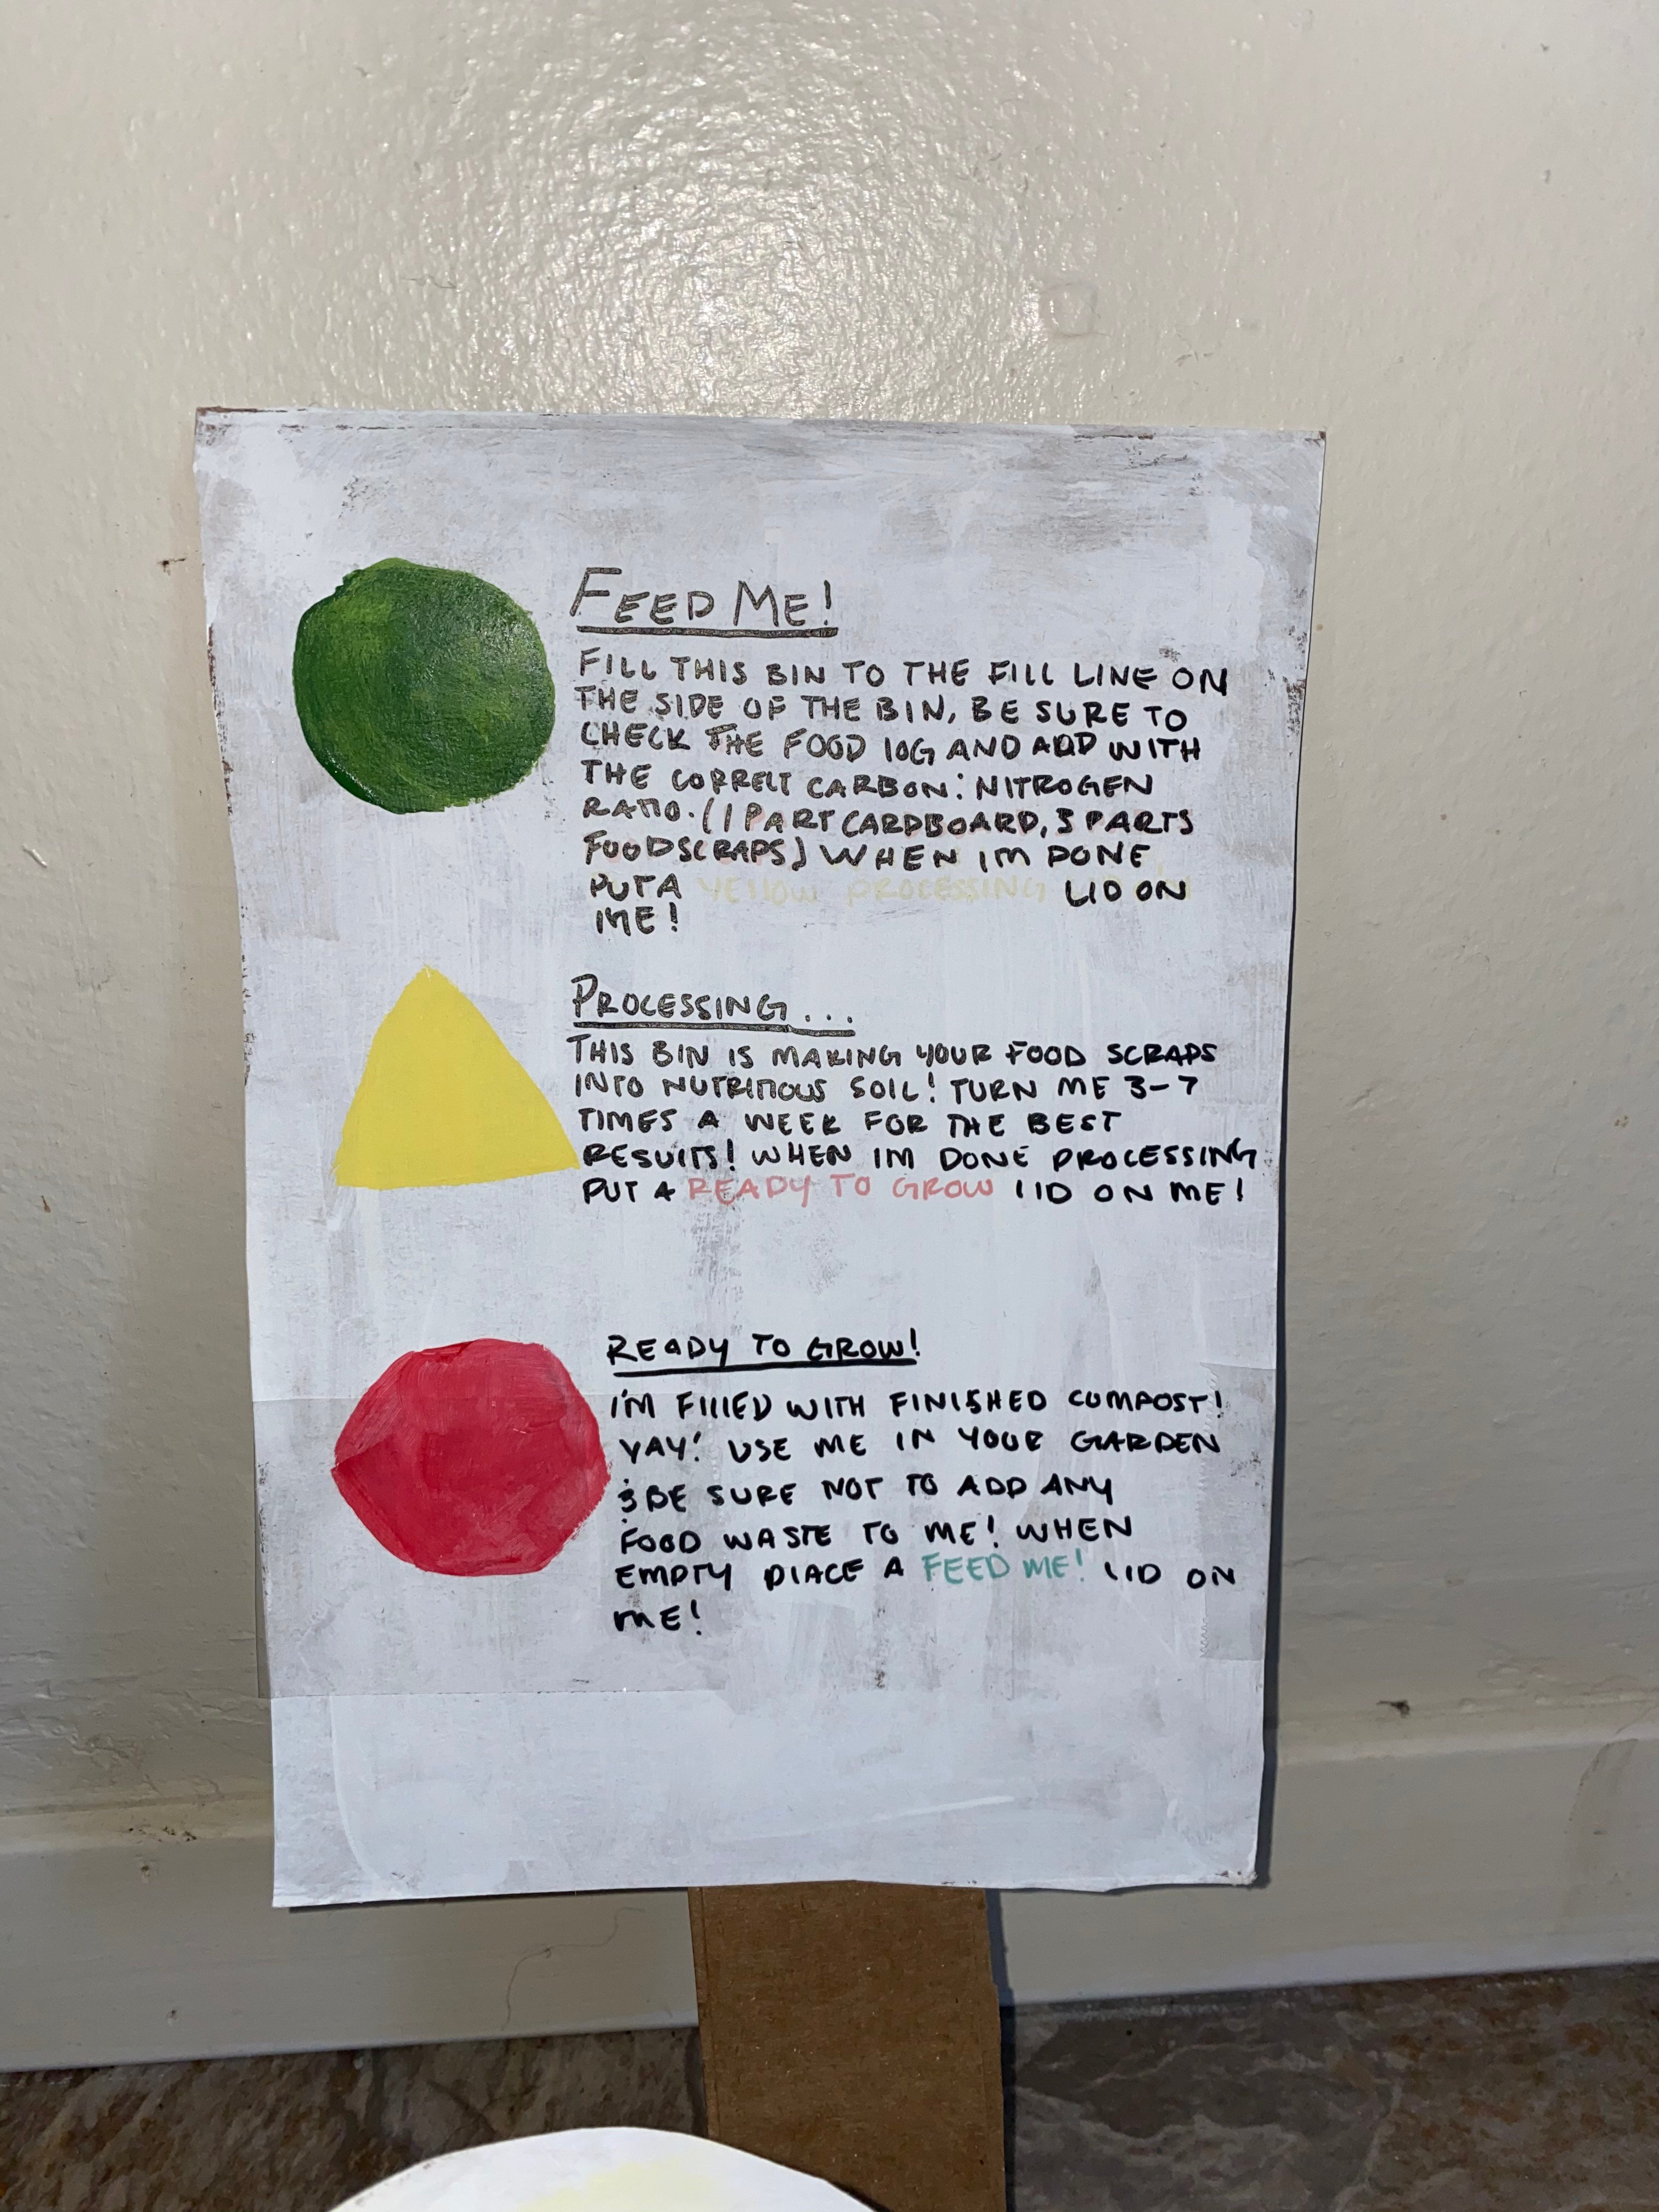 FEED ME!
FILL THIS BIN TO THE FILL LINE ON
THE SIDE OF THE BIN, BE SURE TO
CHECK THE FOOD LOG AND ADD WITH
THE CORRECT CARBON: NITROGEN
RATIO. (1 PART CARDBOARD, 3 PARTS
FOOD SCRAPS) WHEN IM DONE
PUT A YELLOW PROCESSING LID ON
ME!
PROCESSING...
THIS BIN IS MAKING YOUR FOOD SCRAPS
INTO NUTRITIOUS SOIL! TURN ME 3-7
TIMES A WEEK FOR THE BEST
RESULTS! WHEN IM DONE PROCESSING
PUT A READY TO GROW LID ON ME!
READY TO GROW!
I'M FILLED WITH FINISHED COMPOST!
YAY! USE ME IN YOUR GARDEN
& BE SURE NOT TO ADD ANY
FOOD WASTE TO ME! WHEN
EMPTY PLACE A FEED ME! LID ON
ME!